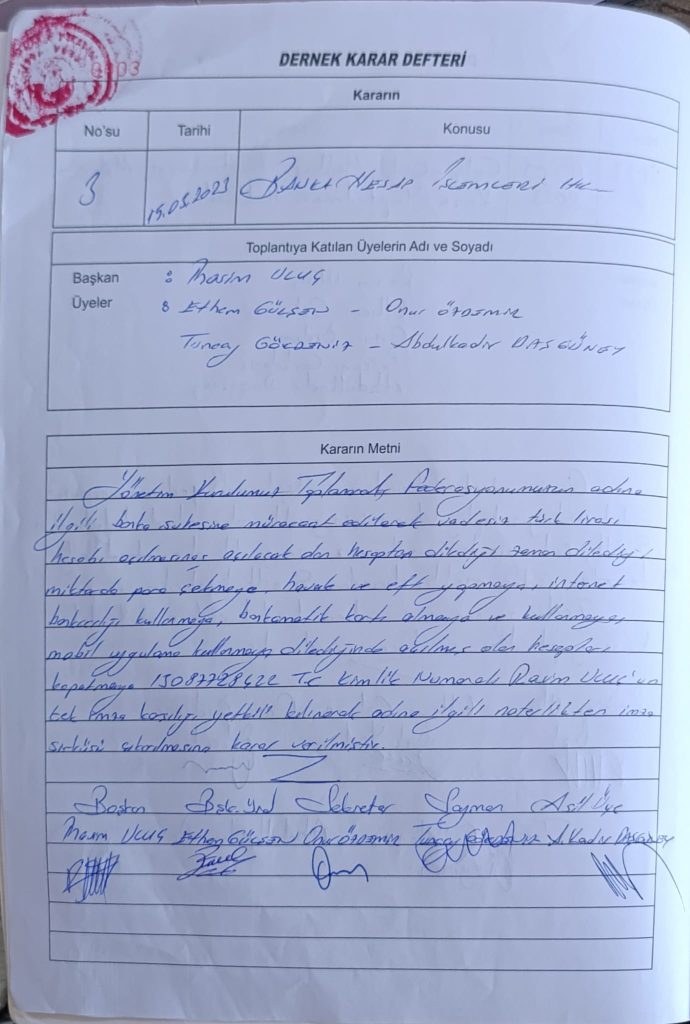 DERNEK KARAR DEFTERİ
Kararın
No'su Tarihi Konusu
3 15.05.2023 BANKA HESAP İŞLEMLERİ HK
Toplantıya Katılan Üyelerin Adı ve Soyadı
Başkan : Rasim ULUÇ
Üyeler : Ethem GÜLŞEN - Onur ÖZDEMİR
Tuncay GÖKDENİZ - Abdulkadir DAŞGÜNEY
Kararın Metni
Yönetim Kurulumuz Toplanarak, Federasyonumuzun adına
ilgili banka şubesine müracaat edilerek vadesiz türk lirası
hesabı açılmasına, açılacak olan hesaptan dilediği zaman dilediği
miktarda para çekmeye, havale ve eft yapmaya, internet
bankacılığı kullanmaya, bankamatik kartı almaya ve kullanmaya,
mobil uygulama kullanmaya dilediğinde açılmış olan hesapları
kapatmaya 15087728422 T.C Kimlik Numaralı Rasim Uluç'un
tek imza karşılığı yetkili kılınarak adına ilgili noterlikten imza
sirküsü çıkarılmasına karar verilmiştir.
Başkan Bşk. Yrd Sekreter Sayman Asil Üye
Rasim ULUÇ Ethem GÜLŞEN Onur ÖZDEMİR Tuncay GÖKDENİZ A.Kadir DAŞGÜNEY